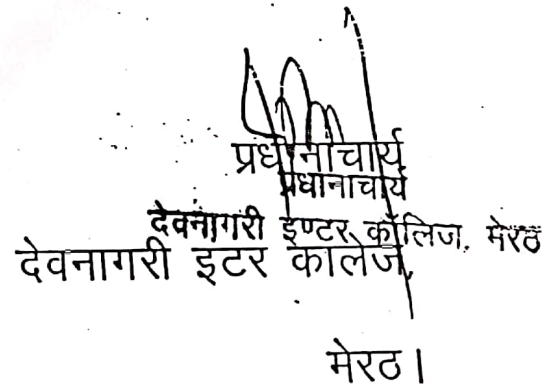 प्रधानाचार्य
प्रधानाचार्य
देवनागरी इण्टर कॉलिज, मेरठ
देवनागरी इंटर कालेज,
मेरठ।